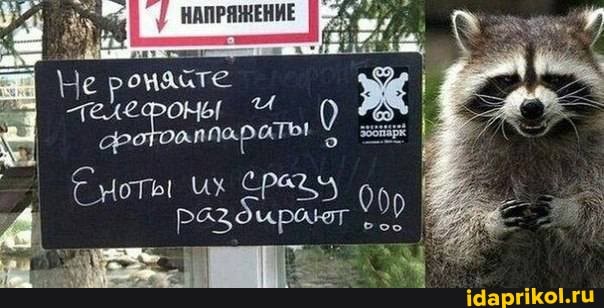 НАПРЯЖЕНИЕ
Не роняйте
телефоны и
фотоаппараты!
Еноты их сразу
разбирают!!!
МОСКОВСКИЙ
зоопарк
idaprikol.ru